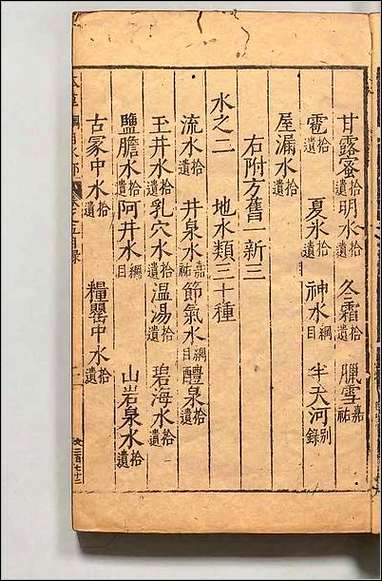 甘露蜜拾遺 明水拾遺 冬霜拾遺 臘雪嘉祐
雹拾遺 夏氷拾遺 神水綱目 半天河別錄
屋漏水拾遺
右附方舊一新三
水之二 地水類三十種
流水拾遺 井泉水嘉祐 節氣水綱目 醴泉拾遺
玉井水拾遺 乳穴水拾遺 温湯拾遺 碧海水拾遺
鹽膽水拾遺 阿井水綱目 山岩泉水拾遺
古冢中水拾遺 糧罌中水拾遺